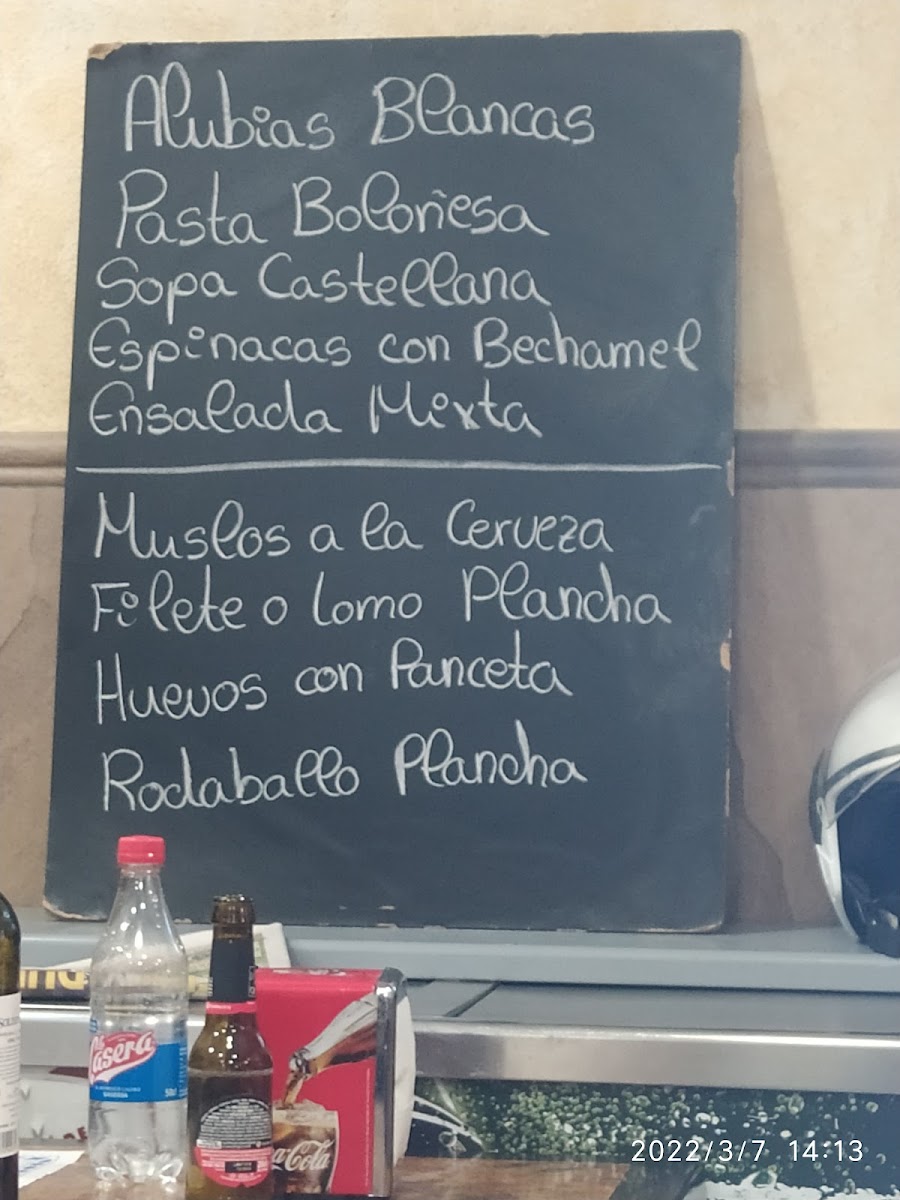 Alubias Blancas
Pasta Boloñesa
Sopa Castellana
Espinacas con Bechamel
Ensalada Mixta
Muslos a la Cerveza
Filete o lomo Plancha
Huevos con Panceta
Rodaballo Plancha
Casera
Coca-Cola
2022/3/7 14:13